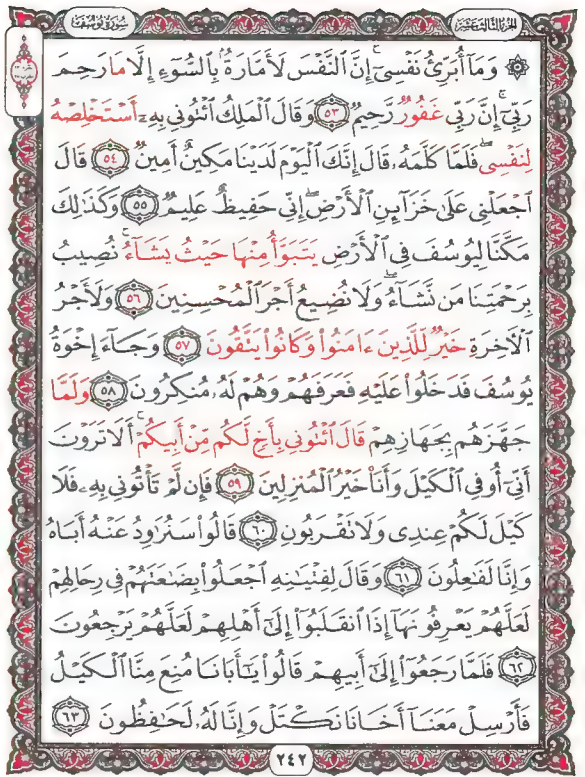 الجزء الثالث عشر
سورة يوسف
۞ وَمَآ أُبَرِّئُ نَفْسِىٓ ۚ إِنَّ ٱلنَّفْسَ لَأَمَّارَةٌۢ بِٱلسُّوٓءِ إِلَّا مَا رَحِمَ
رَبِّىٓ ۚ إِنَّ رَبِّى غَفُورٌ رَّحِيمٌ ٥٣ وَقَالَ ٱلْمَلِكُ ٱئْتُونِى بِهِۦٓ أَسْتَخْلِصْهُ
لِنَفْسِى ۖ فَلَمَّا كَلَّمَهُۥ قَالَ إِنَّكَ ٱلْيَوْمَ لَدَيْنَا مَكِينٌ أَمِينٌ ٥٤ قَالَ
ٱجْعَلْنِى عَلَىٰ خَزَآئِنِ ٱلْأَرْضِ ۖ إِنِّى حَفِيظٌ عَلِيمٌ ٥٥ وَكَذَٰلِكَ
مَكَّنَّا لِيُوسُفَ فِى ٱلْأَرْضِ يَتَبَوَّأُ مِنْهَا حَيْثُ يَشَآءُ ۚ نُصِيبُ
بِرَحْمَتِنَا مَن نَّشَآءُ ۖ وَلَا نُضِيعُ أَجْرَ ٱلْمُحْسِنِينَ ٥٦ وَلَأَجْرُ
ٱلْأَخِرَةِ خَيْرٌ لِّلَّذِينَ ءَامَنُوا۟ وَكَانُوا۟ يَتَّقُونَ ٥٧ وَجَآءَ إِخْوَةُ
يُوسُفَ فَدَخَلُوا۟ عَلَيْهِ فَعَرَفَهُمْ وَهُمْ لَهُۥ مُنكِرُونَ ٥٨ وَلَمَّا
جَهَّزَهُم بِجَهَازِهِمْ قَالَ ٱئْتُونِى بِأَخٍ لَّكُم مِّنْ أَبِيكُمْ ۚ أَلَا تَرَوْنَ
أَنِّىٓ أُوفِى ٱلْكَيْلَ وَأَنَا۠ خَيْرُ ٱلْمُنزِلِينَ ٥٩ فَإِن لَّمْ تَأْتُونِى بِهِۦ فَلَا
كَيْلَ لَكُمْ عِندِى وَلَا تَقْرَبُونِ ٦٠ قَالُوا۟ سَنُرَٰوِدُ عَنْهُ أَبَاهُ
وَإِنَّا لَفَٰعِلُونَ ٦١ وَقَالَ لِفِتْيَٰنِهِ ٱجْعَلُوا۟ بِضَٰعَتَهُمْ فِى رِحَالِهِمْ
لَعَلَّهُمْ يَعْرِفُونَهَآ إِذَا ٱنقَلَبُوٓا۟ إِلَىٰٓ أَهْلِهِمْ لَعَلَّهُمْ يَرْجِعُونَ
٦٢ فَلَمَّا رَجَعُوٓا۟ إِلَىٰٓ أَبِيهِمْ قَالُوا۟ يَٰٓأَبَانَا مُنِعَ مِنَّا ٱلْكَيْلُ
فَأَرْسِلْ مَعَنَآ أَخَانَا نَكْتَلْ وَإِنَّا لَهُۥ لَحَٰفِظُونَ ٦٣
٢٤٢